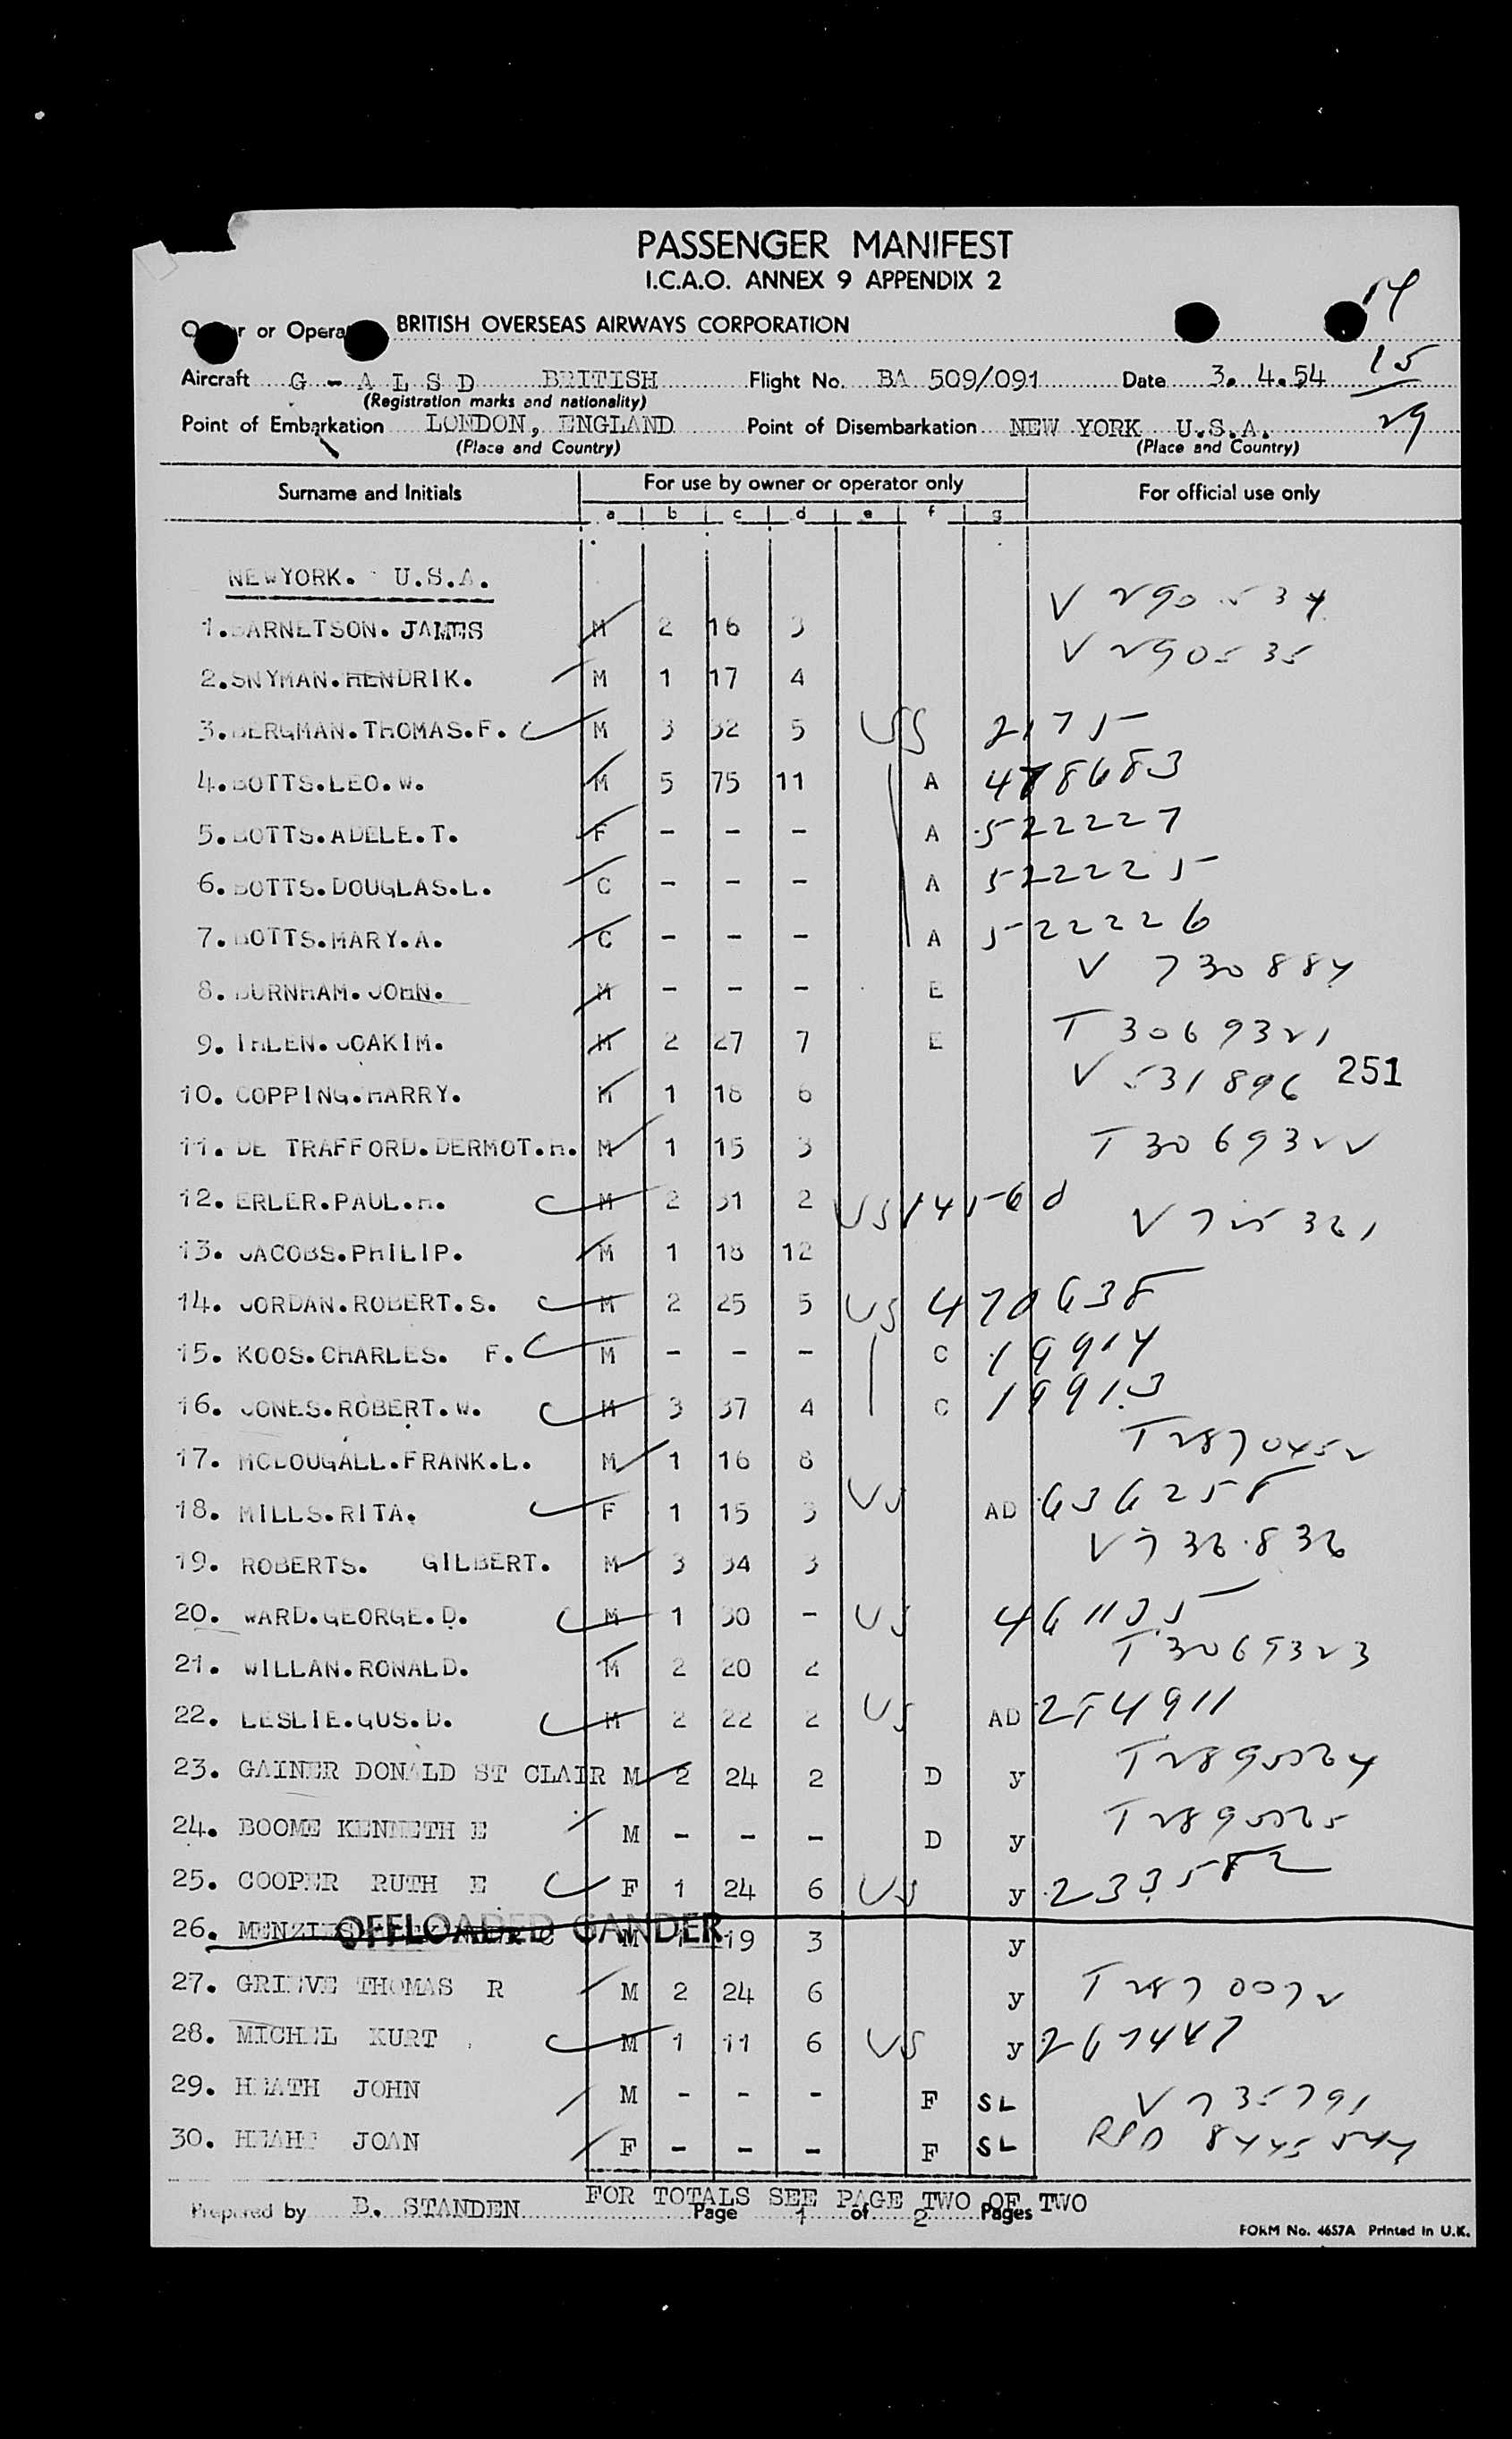 PASSENGER MANIFEST
I.C.A.O. ANNEX 9 APPENDIX 2
14
or Opera BRITISH OVERSEAS AIRWAYS CORPORATION
15
Aircraft G - A L S D BRITISH Flight No. BA 509/091 Date 3. 4.54
(Registration marks and nationality)
29
Point of Embarkation LONDON, ENGLAND Point of Disembarkation NEW YORK U.S.A.
(Place and Country) (Place and Country)
Surname and Initials For use by owner or operator only For official use only
a b c d e f g
NEWYORK. U.S.A.
V 290534
1.BARNETSON. JAMES M 2 16 3
V 290535
2.SNYMAN.HENDRIK. M 1 17 4
3.BERGMAN.THOMAS.F. C M 3 32 5 US 2175
4.BOTTS.LEO.W. M 5 75 11 A 478683
5.BOTTS.ADELE.T. F - - - A 522227
6.BOTTS.DOUGLAS.L. C - - - A 522225
7.BOTTS.MARY.A. C - - - A 522226
V 730884
8. BURNHAM.JOHN. M - - - E
9. IHLEN.JOAKIM. M 2 27 7 E T 3069321
V 531896 251
10. COPPING.HARRY. M 1 18 6
11. DE TRAFFORD.DERMOT.H. M 1 15 3 T 3069322
12. ERLER.PAUL.H. C M 2 31 2 US
13. JACOBS.PHILIP. M 1 18 12 V 725321
14. JORDAN.ROBERT.S. C M 2 25 5 US 470638
15. KOOS.CHARLES. F. C M - - - C 19914
16. JONES.ROBERT.W. C M 3 37 4 C 19913
17. MCDOUGALL.FRANK.L. M 1 16 8 T 2870452
18. MILLS.RITA. C F 1 15 3 US AD 636258
19. ROBERTS. GILBERT. M 3 34 3 V 732832
20. WARD.GEORGE.D. C M 1 30 - US 461135
21. WILLAN.RONALD. M 2 20 2 T 3069323
22. LESLIE.GUS.D. C M 2 22 2 US AD 254911
23. GAINER DONALD ST CLAIR M 2 24 2 D y
24. BOOME KENNETH E M - - - D y
25. COOPER RUTH E C F 1 24 6 US y 233582
26. MENZIES OFFLOADED GANDER M 1 19 3 y
27. GRIEVE THOMAS R M 2 24 6 y T 2870072
28. MICHEL KURT C M 1 11 6 US y 267447
29. HEATH JOHN M - - - F SL V 735791
30. HEAHT JOAN F - - - F SL
FOR TOTALS SEE PAGE TWO OF TWO
Prepared by B. STANDEN Page 1 of 2 Pages
FORM No. 4657A Printed in U.K.